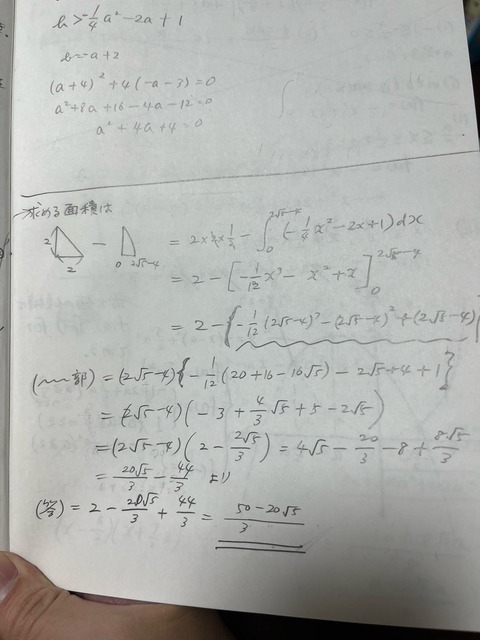 b > -1/4 a² - 2a + 1
b = -a + 2
(a+4)² + 4(-a-3) = 0
a² + 8a + 16 - 4a - 12 = 0
a² + 4a + 4 = 0
求める面積は
2 2 - 0 2√5-4 = 2×2×1/2 - ∫₀^{2√5-4} (-1/4 x² - 2x + 1) dx
= 2 - [-1/12 x³ - x² + x]₀^{2√5-4}
= 2 - { -1/12 (2√5-4)³ - (2√5-4)² + (2√5-4)
(〜〜部) = (2√5-4) { -1/12 (20+16-16√5) - 2√5+4+1 }
= (2√5-4) ( -3 + 4/3 √5 + 5 - 2√5 )
= (2√5-4) ( 2 - 2√5/3 ) = 4√5 - 20/3 - 8 + 8√5/3
= 20√5/3 - 44/3 より
= 2 - 20√5/3 + 44/3 = 50-20√5/3